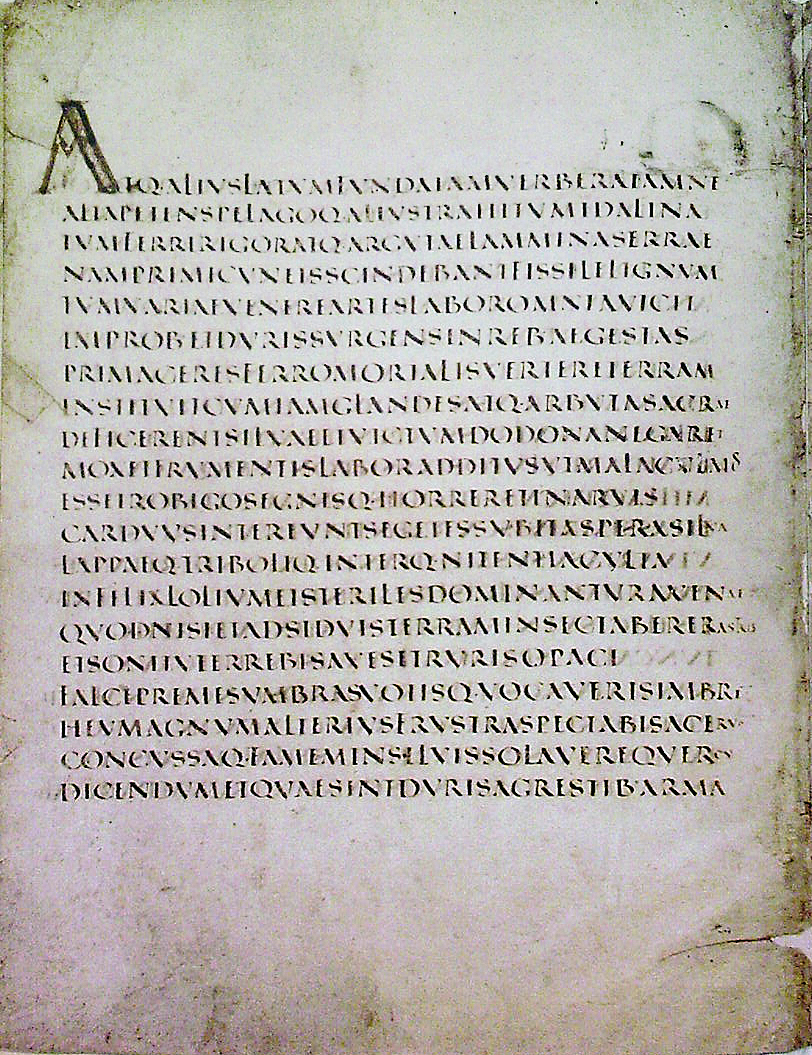 ATQALIVSLATVMFVNDAIAMVERBERATAMNE
ALTAPETENSPELAGOQALIVSTRAHITVMIDALINA
TVMFERRIRIGORATQARGVTAELAMMINASERRAE
NAMPRIMICVNEISSCINDEBANTFISSILELIGNVM
TVMVARIAEVENEREARTESLABOROMNIAVICIT
IMPROBETDVRISSVRGENSINREBAEGESTAS
PRIMACERESFERROMORTALISVERTERETERRAM
INSTITVITCVMIAMGLANDESATQARBVTASACRAE
DEFICERENTSILVAEETVICTVMDODONANEGARET
MOXETFRVMENTISLABORADDITVSVTMALACVLMOS
ESSETROBIGOSEGNISQ·HORRERETINARVIS
CARDVVSINTEREVNTSEGETESSVBITASPERASILVA
LAPPAEQTRIBOLIQ·INTERQNITENTIACVLTA
INFELIXLOLIVMETSTERILESDOMINANTVRAVENAE
QVODNISIETADSIDVISTERRAMINSECTABERERASTRIS
ETSONITVTERREBISAVESETRVRISOPACI
FALCEPREMESVMBRASVOTISQVOCAVERISIMBRE
HEVMAGNVMALTERIVSFRVSTRASPECTABISACERV
CONCVSSAQ·FAMEMINSILVISSOLAVEREQVERCV
DICENDVMETQVAESINTDVRISAGRESTIB·ARMA